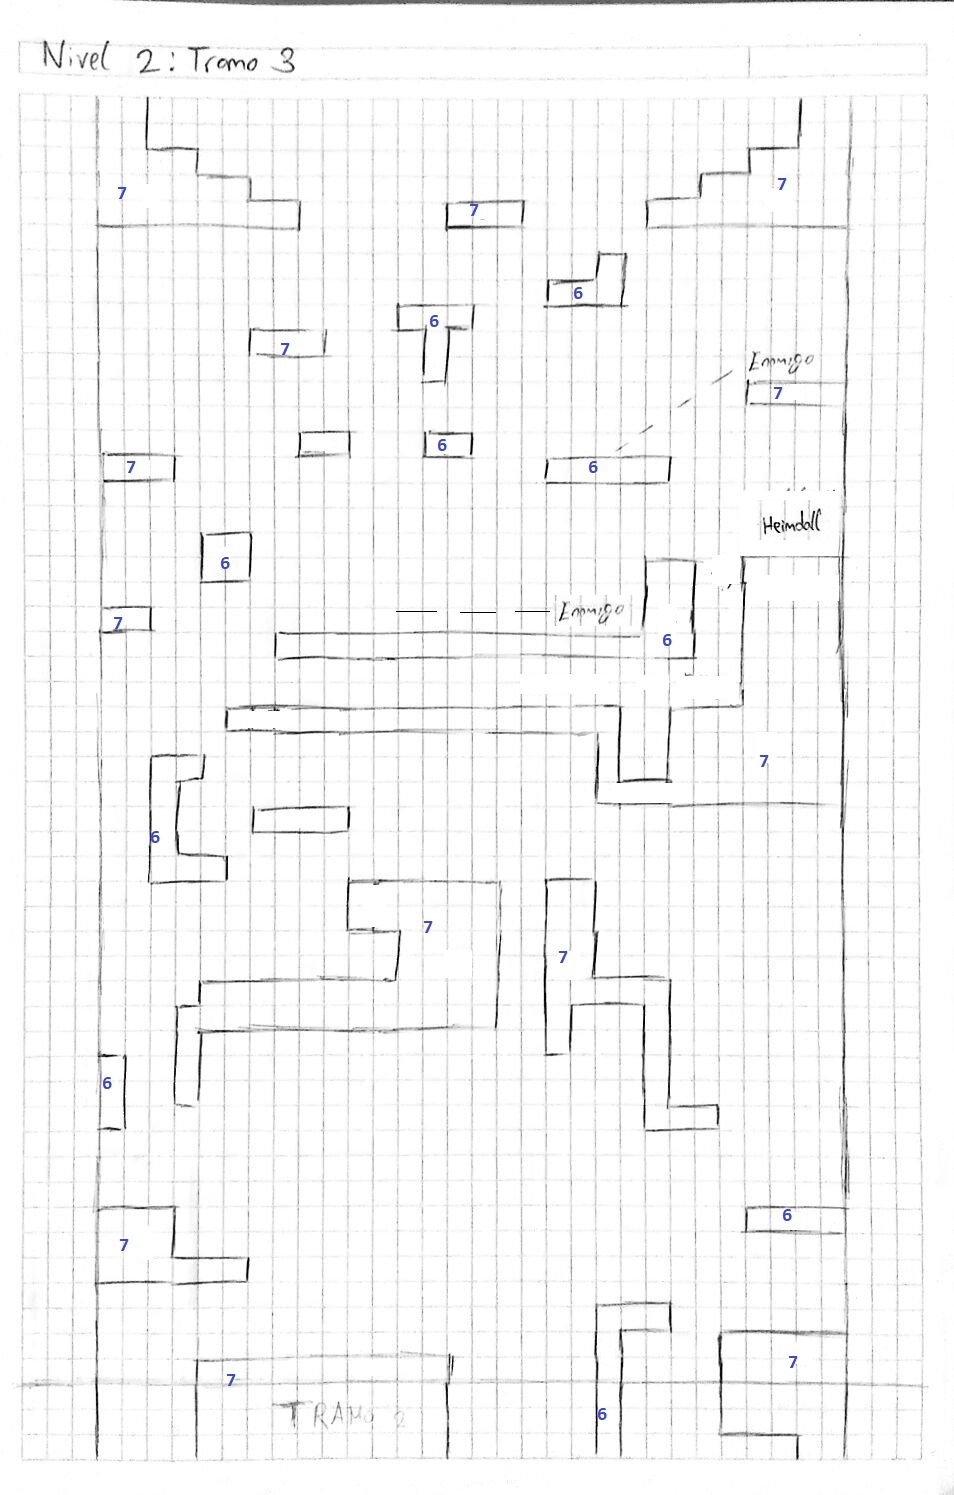 Nivel 2: Tramo 3
7
7
7
6
6
7
Enemigo
7
6
7
6
Heimdall
6
7
Enemigo
6
7
6
7
7
6
6
7
7
7
6
TRAMO 2